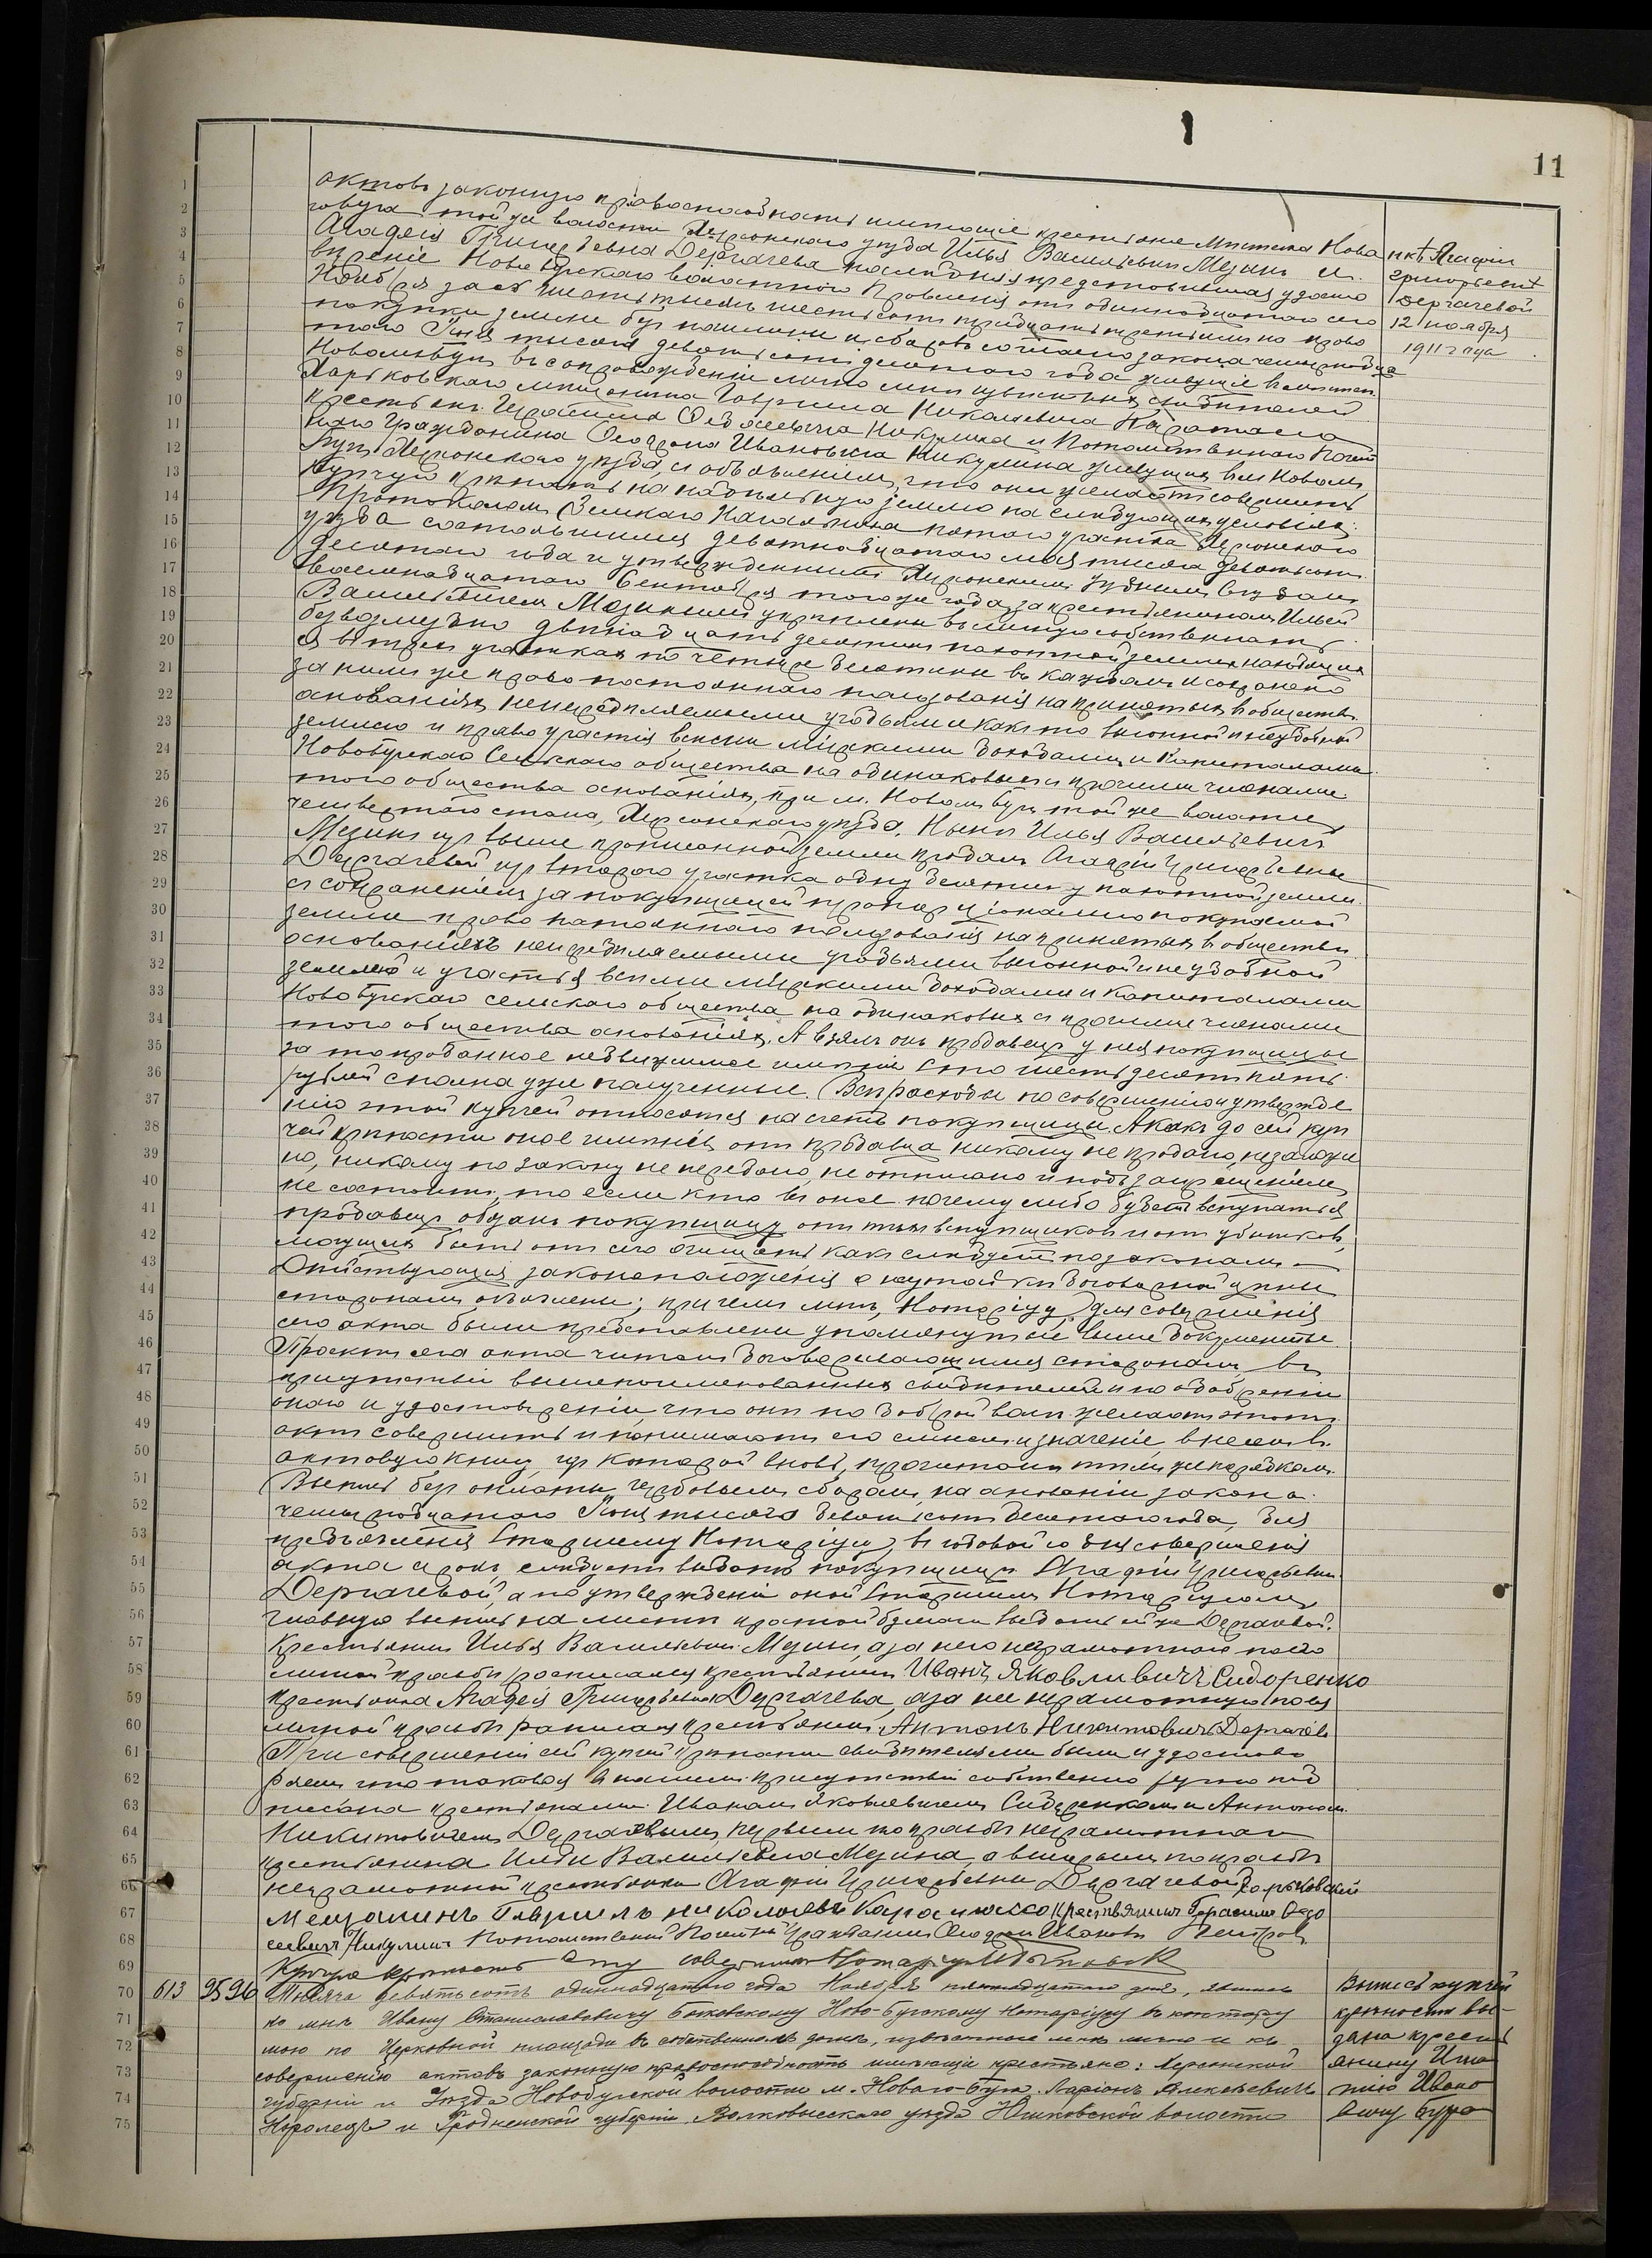 11
актовъ законную правоспособность имеющіе крестьяне Мѣстечка Нова
говуга той же волости Херсонскаго уѣзда Илья Васильевичъ Мезинъ и
Агафія Григорьевна Дергачева последняя представившая удосто
вѣреніе Новобугскаго волостного Правленія отъ одиннадцатаго сего
Ноября за № шесть тысячъ шестьсотъ тридцать третьимъ на право
покупки земли безъ пошлинъ и сборовъ согласно закона четырнадца
таго Іюня тысяча девятьсотъ десятаго года живущіе въ мѣстеч.
Новомъ Бугѣ въ сопровожденіи лично мнѣ извѣстныхъ свидѣтелей
Харьковскаго мѣщанина Гавріила Николаевича
крестьянъ Герасима Федосеевича Никулина и Потомственнаго Почет
наго Гражданина Ивановича живущихъ въ м. Новомъ
Бугѣ Херсонскаго уѣзда съ объявленіемъ, что они желаютъ совершить
купчую крѣпость на надѣльную землю на слѣдующихъ условіяхъ:
Протоколомъ Земскаго Начальника пятаго участка Херсонскаго
уѣзда состоявшимся девятнадцатаго мая тысяча девятьсотъ
десятаго года и утвержденнымъ Херсонскимъ Уѣзднымъ Съѣздомъ
восемнадцатаго Сентября того же года, за крестьяниномъ Ильей
Васильевичемъ Мезинымъ укрѣплены въ личную собственность
безвозмездно двѣнадцать десятинъ пахотной земли, находящихся
въ трехъ участкахъ по четыре десятины въ каждомъ и сохранено
за нимъ же право постояннаго пользованія на принятыхъ въ обществѣ
основаніяхъ непередѣляемыми угодьями какъ то выгонной и неудобной
землею и право участія всѣми мірскими доходами и капиталами
Новобугскаго Сельскаго общества на одинаковыхъ съ прочими членами
того общества основаніяхъ, при м. Новомъ Бугѣ той же волости,
четвертаго стана, Херсонскаго уѣзда. Нынѣ Илья Васильевичъ
Мезинъ изъ выше прописанной земли продалъ Агафіи Григорьевнѣ
Дергачевой изъ второго участка одну десятину пахотной земли
съ сохраненіемъ за покупщицей пропорціонально покупаемой
земли право постояннаго пользованія на принятыхъ въ обществѣ
основаніяхъ непередѣляемыми угодьями выгонной и неудобной
землею и участія всѣми мірскими доходами и капиталами
Новобугскаго сельскаго общества на одинаковыхъ съ прочими членами
того общества основаніяхъ. А взялъ онъ продавецъ у нея покупщицы
за то проданное недвижимое имѣніе сто шестьдесятъ пять
рублей сполна уже полученные. Всѣ расходы по совершенію и утвержде
нію этой купчей относятся на счетъ покупщицы. А какъ до сей куп
чей крѣпости оное имѣніе отъ продавца никому не продано, не заложе
но, никому по закону не передано, не отписано и подъ запрещеніемъ
не состоитъ, то если кто въ оное почему либо будетъ вступаться
продавецъ обязанъ покупщицу отъ тѣхъ вступщиковъ и отъ убытковъ,
могущихъ быть отъ сего очищать какъ слѣдуетъ по законамъ.
Дѣйствующія законоположенія о неутайкѣ договорной цѣны
сторонамъ объяснены; при чемъ мнѣ, Нотаріусу, для совершенія
сего акта были представлены упомянутые выше документы.
Проектъ сего акта читанъ договаривающимся сторонамъ въ
присутствіи вышепоименованныхъ свидѣтелей и по одобреніи
онаго и удостовѣреніи, что они по доброй волѣ желаютъ этотъ
актъ совершить и понимаютъ его смыслъ и значеніе, внесенъ въ
актовую книгу, изъ которой вновь, прочитанъ тѣмъ же порядкомъ.
Выпись безъ оплаты гербовымъ сборомъ, на основаніи закона
четырнадцатаго Іюня тысяча девятьсотъ десятаго года, для
предъявленія Старшему Нотаріусу, въ годовой со дня совершенія
акта срокъ, слѣдуетъ выдать покупщицѣ Агафіи Григорьевнѣ
Дергачевой, а по утвержденіи оной Старшимъ Нотаріусомъ
главную выпись на листѣ простой бумаги выдать ей же Дергачевой.
Крестьянинъ Илья Васильевичъ Мезинъ, а за него неграмотнаго по его
личной просьбѣ росписался крестьянинъ Иванъ Яковливичъ Сидоренко
Крестьянка Агафія Григорьевна Дергачева, а за нее неграмотную по ея
личной просьбѣ росписался крестьянинъ Антонъ Никитовичъ Дергачевъ
При совершеніи сей купчей крѣпости свидѣтелями были и удостовѣ
ряемъ что таковая въ нашемъ присутствіи собственно ручно под
писана крестьянами: Иваномъ Яковлевичемъ Сидоренкомъ и Антономъ
Никитовичемъ Дергачевымъ, первымъ по просьбѣ неграмотнаго
крестьянина Ильи Васильевича Мезина, а вторымъ по просьбѣ
неграмотной крестьянки Агафіи Григорьевны Дергачевой Харьковскій
Мещанинъ Гавриилъ николаевъ крестьянинъ Герасимъ Федо
сеевичъ Никулинъ Потомственный Почетный Гражданинъ Ивановъ Петровъ
Купчую крѣпость эту совершилъ Нотаріусъ
613 9596 Тысяча девятьсотъ одиннадцатаго года Ноября пятнадцатаго дня, явились
ко мнѣ Ивану Станиславовичу Ново-Бугскому Нотаріусу въ контору
мою по Церковной площади въ собственномъ домѣ, извѣстные мнѣ лично и къ
совершенію актовъ законную правоспособность имѣющіе крестьяне: Херсонской
губерніи и Уѣзда Новобугской волости м. Новаго-Буга Ларіонъ Алексѣевичъ
Королецъ и Гродненской губерніи Волковысскаго уѣзда волости
Агафіи
Григорьевнѣ
Дергачевой
12 ноября
1911 года
Выпись купчей
крѣпости вы-
дана крестья
янину Игна
тію Ивано
вичу